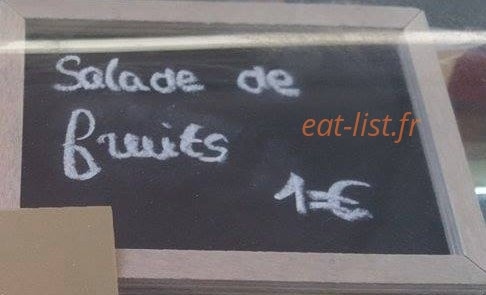 Salade de
fruits
eat-list.fr
1=€